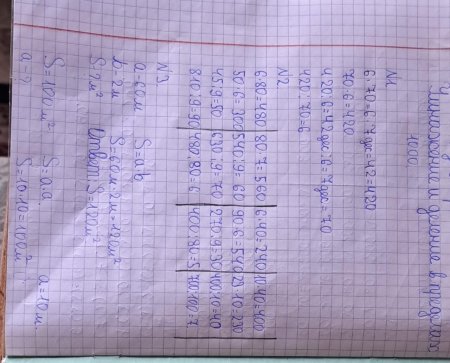 Умножение и деление в пределах
1000
№1
6·70=6·7дес=42=420
70·6=420
420:6=42дес:6=7дес=70
420:70=6
№2
6·80=480 80·7=560 6·40=240 10·40=400
50·6=300 540:9=60 90·6=540 23·10=230
450:9=50 630:9=70 270:9=30 400:10=40
810:9=90 480:80=6 400:80=5 700:100=7
№3
a=60м S=a·b
b=2м S=60м·2м=120м²
S=?м² Ответ: S=120м²
S=100м² S=a·a a=10м
a-? S=10·10=100м²